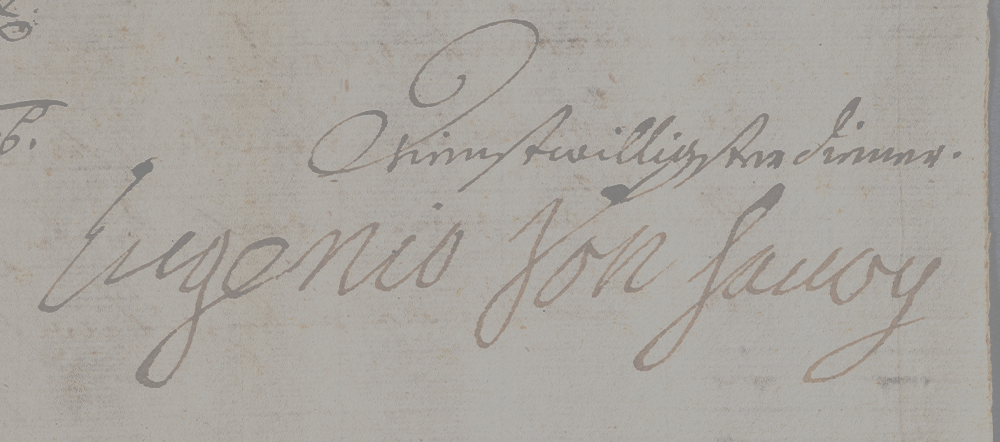 Dienstwilligster diener.
Eugenio Von Savoy